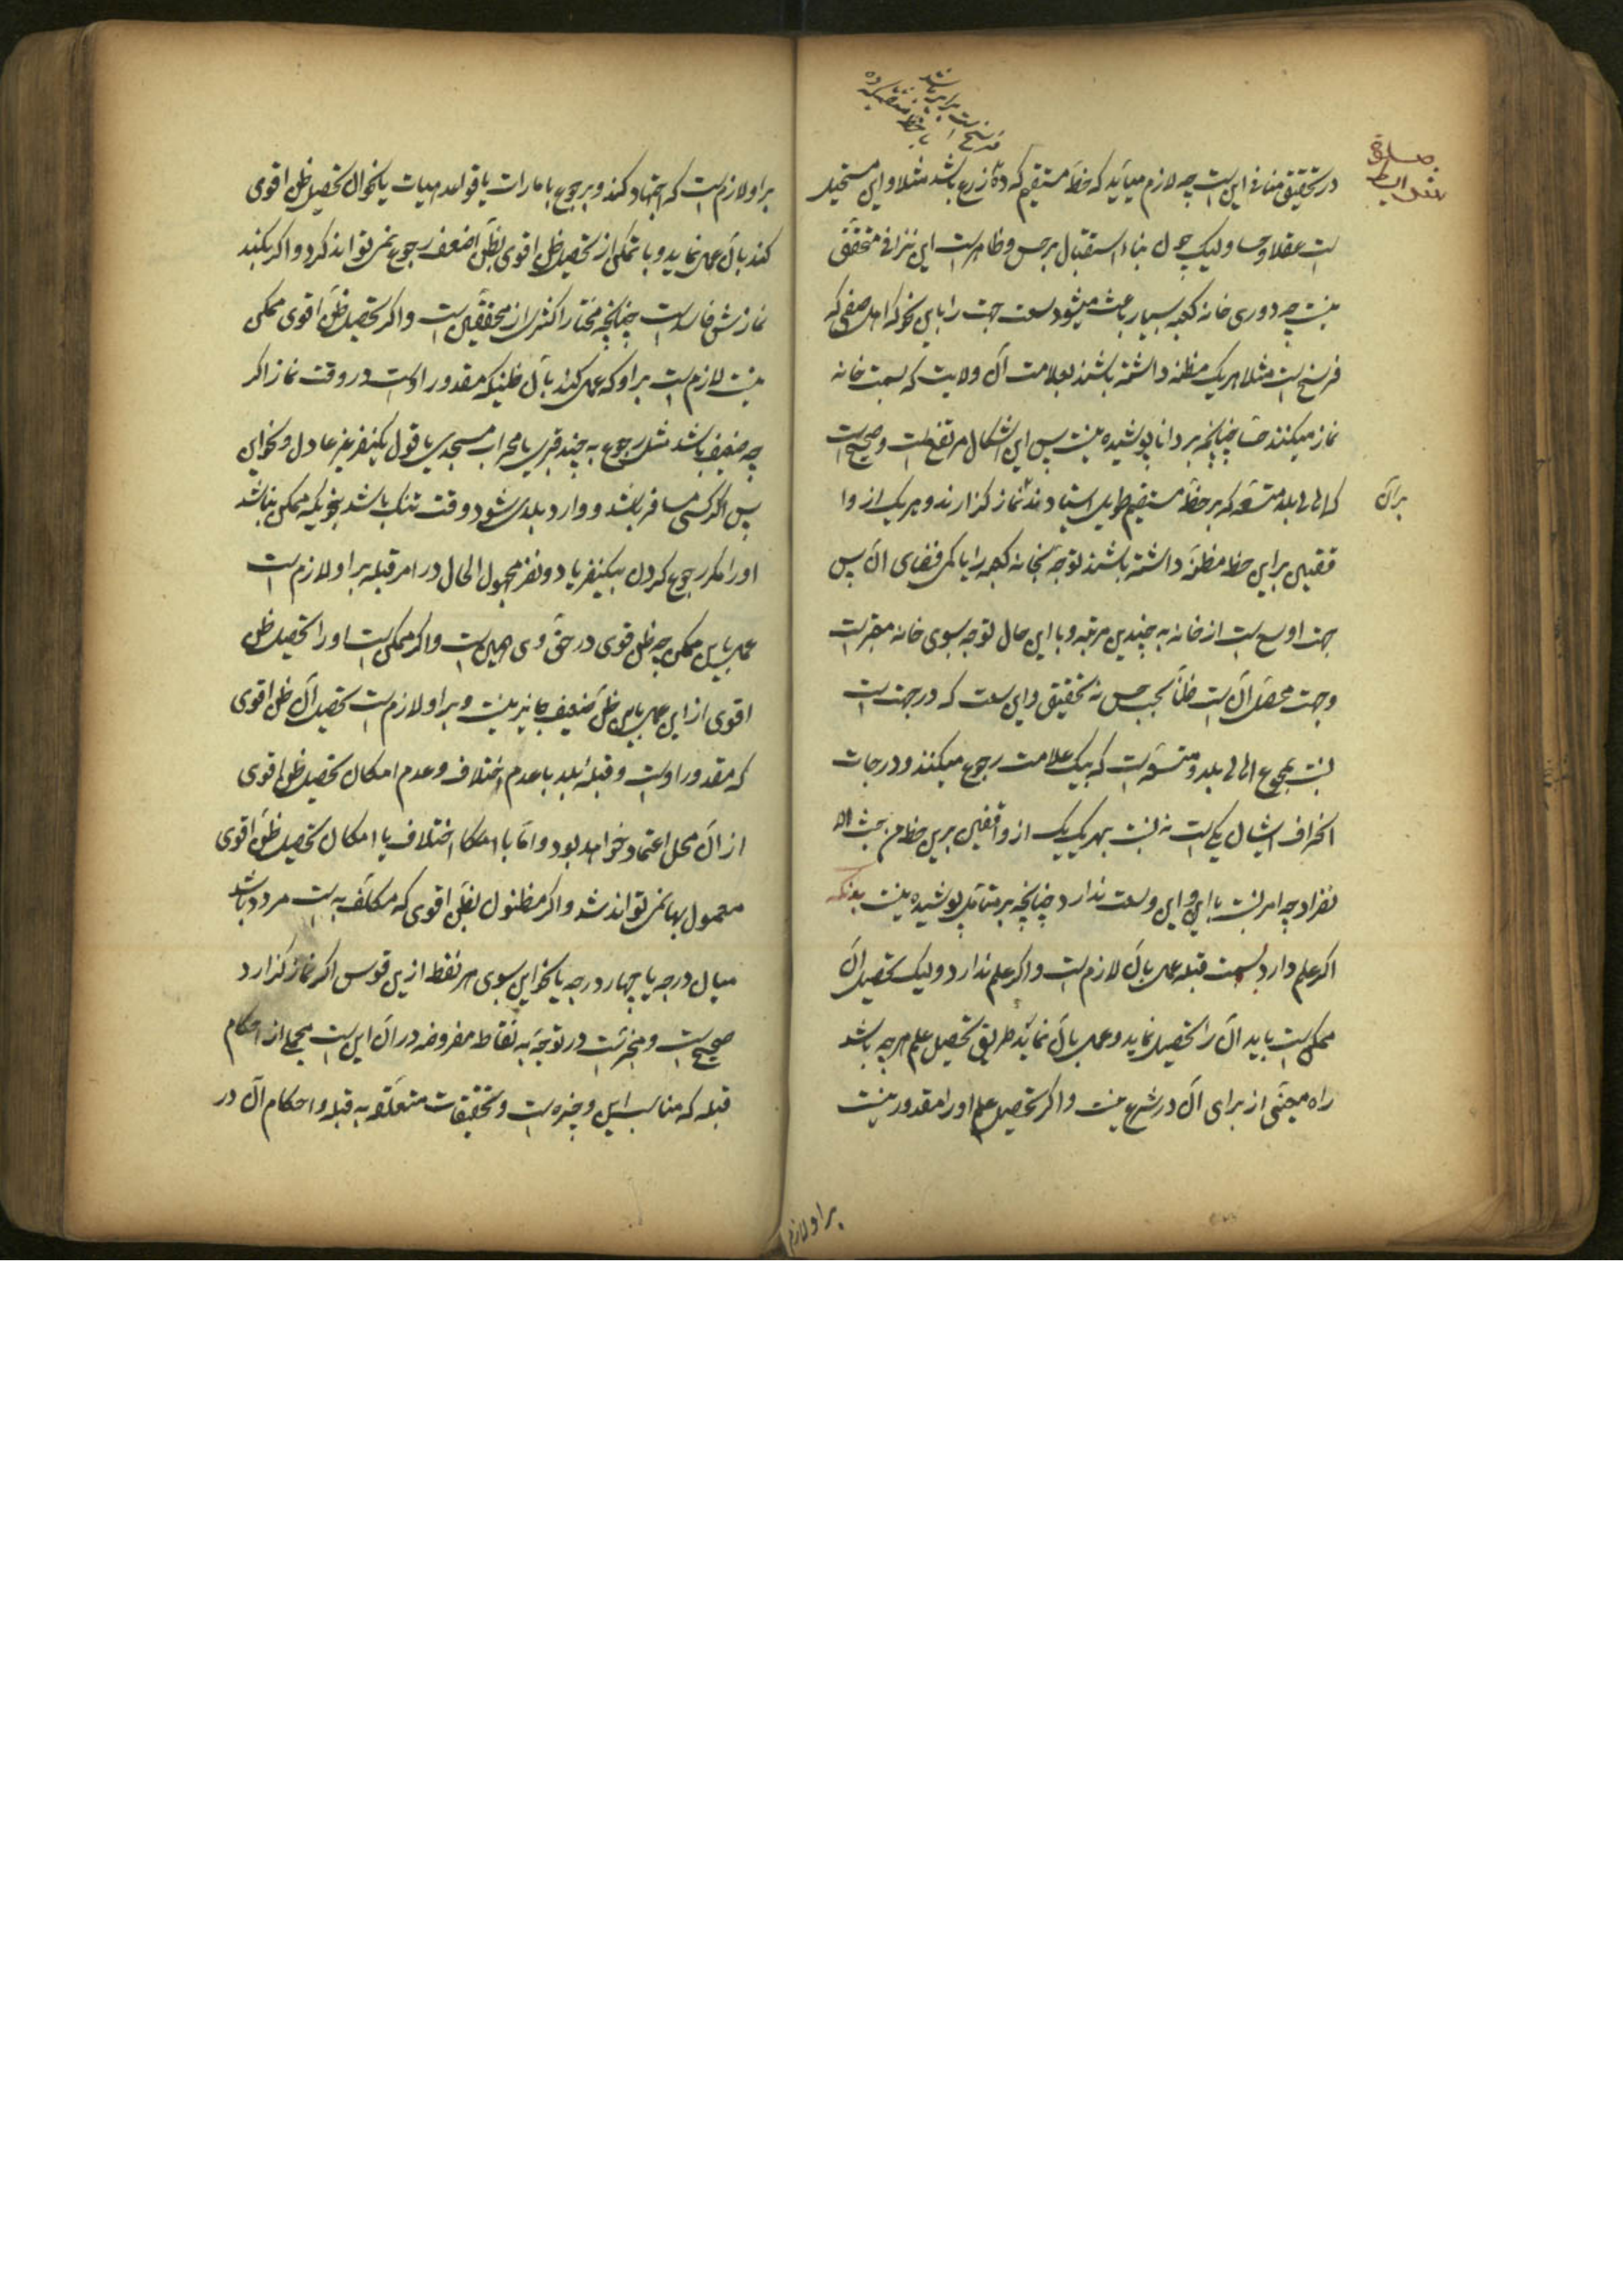 در تحقیق منافی این است چه لازم میاید که خط مستقیم که ده زرع باشد مثلا و این مستحیل
است عقلا و حسا ولیک چون بناء استقبال بر حس و ظاهر است این تنزافی متحقق
نیست چه دوری خانه کعبه بسیار باعث میشود سعت جهت را باین نحو که اهل صفی که
فرسخ است مثلا هر یک مظنه داشته باشند بعلامت آن ولایت که بسمت خانه
نماز میکنند حسا چنانچه بر دانا پوشیده نیست پس این اشکال مرتفع است و صحیح است
برآن
که اهالی بلد متسعه که بر خط مستقیم طویل استاده اند نماز گزارند و هر یک از وا
قفین بر این خط مظنه داشته باشند توجه بخانه کعبه را یا کمی فضای آن پس
جهت اوسع است از خانه به چندین مرتبه و با این حال توجه بسوی خانه معتبر است
وجهت محصل آن است ظنا بحسب حس نه تحقیق و این سعت که در جهت است
نسبت بمجموع اهالی بلد متسعه است که بیک علامت رجوع میکنند و درجات
انحراف ایشان یکی است نه نسبت بهر یک یک از واقفین برین خط من حیث الا
نفراد چه امر نسبت باین و این وسعت ندارد چنانچه بر متامل پوشیده نیست بدونکه
اگر علم دارد بسمت قبله عمل بآن لازم است و اگر علم ندارد ولیک تحصیل آن
ممکن است باید آن را تحصیل نماید و عمل بآن نماید طریق تحصیل علم هر چه باشد
راه معینی از برای آن در شرع نیست و اگر تحصیل علم او را مقدور نیست
بر او لازم
بر او لازم است که اجتهاد کند و برجوع بامارات یا قواعد هیات یا نحو آن تحصیل ظن اقوی
کند بآن عمل نماید و با تمکن از تحصیل ظن اقوی بظن اضعف رجوع نمی تواند کرد و اگر بکند
نمازش فاسد است چنانچه مختار اکثری از محققین است و اگر تحصیل ظن اقوی ممکن
نیست لازم است بر او که عمل کند بآن ظنیکه مقدور او است در وقت نماز اگر
چه ضعیف باشد مثل رجوع به چند قبری یا محراب مسجدی یا قول یکنفر غیر عادل و نحو این
پس اگر کسی مسافر باشد و وارد بلدی شود و وقت تنگ باشد بنحویکه ممکن نباشد
او را مگر رجوع کردن بیکنفر یا دو نفر مجهول الحال در امر قبله بر او لازم است
عمل باین ممکن چه ظن قوی در حق وی همین است و اگر ممکن است او را تحصیل ظن
اقوی از این عمل باین ظن ضعیف جایز نیست و بر او لازم است تحصیل آن ظن اقوی
که مقدور او است و قبله بلد با عدم اختلاف و عدم امکان تحصیل ظن اقوی
از آن محل اعتماد خواهد بود و اما با امکان اختلاف یا امکان تحصیل ظن اقوی
معمول بها نمی تواند شد و اگر مظنون بظن اقوی که مکلف به است مردد باشد
میان درجه یا چهار درجه یا نحو این بسوی هر نقطه از این قوس اگر نماز گزارد
صحیح است و مجزی است در توجه به نقاط مفروضه در آن این است مجملی از احکام
قبله که مناسب این وجیزه است و تحقیقات متعلقه به قبله و احکام آن در